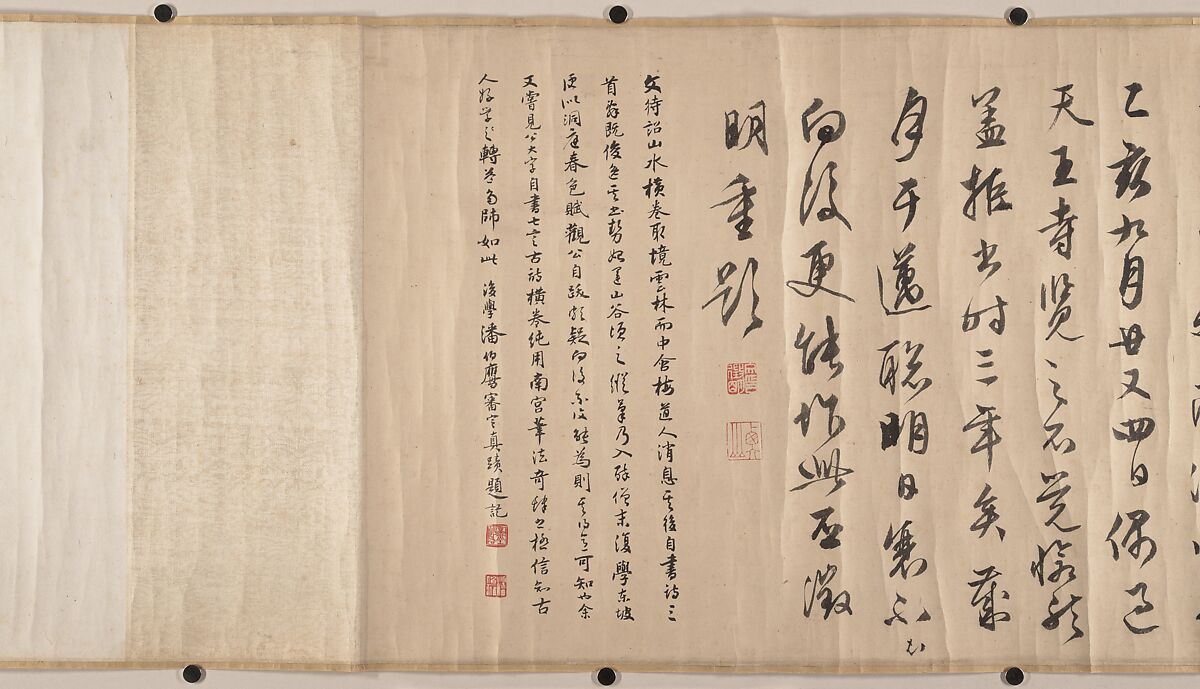 己亥九月廿又四日偶過
天王寺覽之不覺悵然
盖拒書时三年矣歲
月于邁聰明日衰不知
向後更能作此否徵
明重題
文待詔山水橫卷取境雲林而中含梅道人消息其後自書詩三
首既俊逸其出勢是山谷頃之縱筆乃入醉僧末復學東坡
洞庭春色賦觀公自跋頗疑向後不復能為則其得意可知也余
又嘗見公大字自書七言古詩橫卷純用南宮筆法奇肆之極信知古
人好學之轉益多師如此 後學潘伯鷹審定真蹟題記